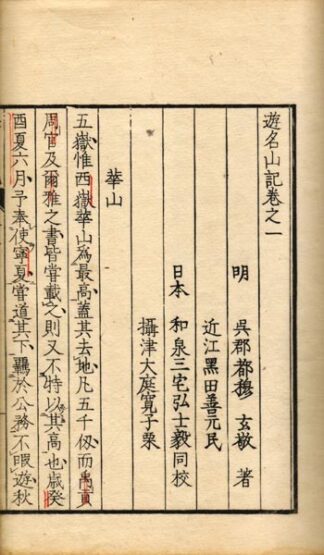 遊名山記卷之一
明 吳郡都穆 玄敬 著
近江黑田善元民
日本 和泉三宅弘士毅同校
攝津大庭寬子栗
華山
五嶽惟西嶽華山為最高蓋其去地凡五千仭而禹貢
周官及爾雅之書皆嘗載之則又不特以其高也歲癸
酉夏六月予奉使寧夏嘗道其下羈於公務不暇遊秋